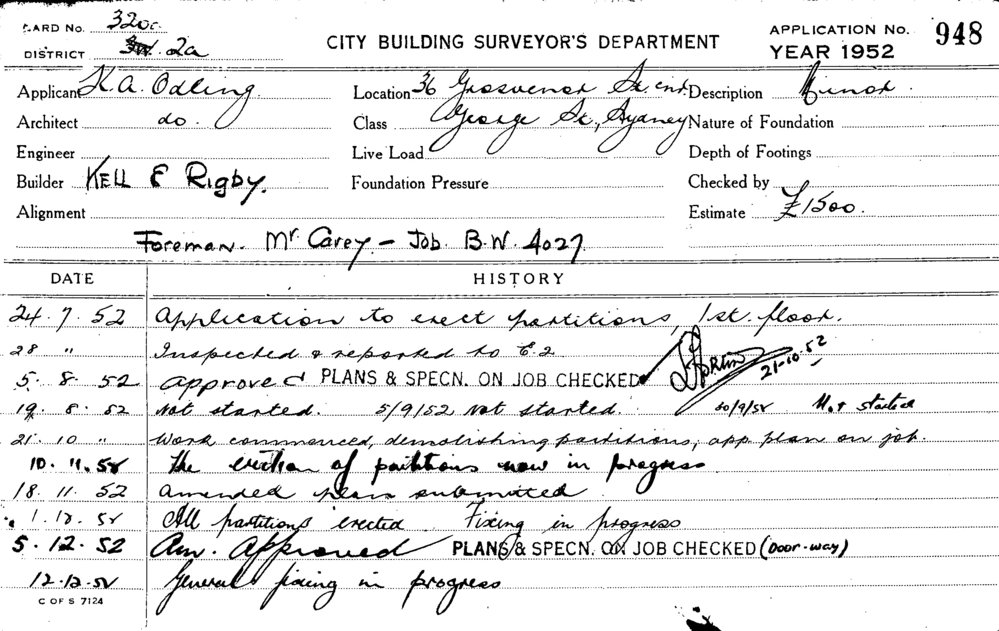 CARD No. 320c.
DISTRICT 2a
CITY BUILDING SURVEYOR'S DEPARTMENT
APPLICATION No. 948
YEAR 1952
Applicant K.A. Odling.
Location 36 Grosvenor St. cnr
Description Minor.
Architect do.
Class George St., Sydney
Nature of Foundation
Engineer
Live Load
Depth of Footings
Builder KELL & Rigby.
Foundation Pressure
Checked by
Alignment
Estimate £1500.
Foreman. Mr Carey - Job. B.W. 4027
DATE HISTORY
24.7.52 Application to erect partitions, 1st. floor.
28 " Inspected & reported to E.2
5.8.52 Approved PLANS & SPECN. ON JOB CHECKED 21-10.52
19.8.52 Not started. 5/9/52 Not started. 30/9/52 Not started
21.10 " Work commenced, demolishing partitions, app plan on job.
10.11.52 The erection of partitions now in progress
18.11.52 Amended plan submitted
1.12.52 All partitions erected. Fixing in progress
5.12.52 Am. Approved PLANS & SPECN. ON JOB CHECKED (DOOR-WAY)
12.12.52 General fixing in progress
C OF S 7124